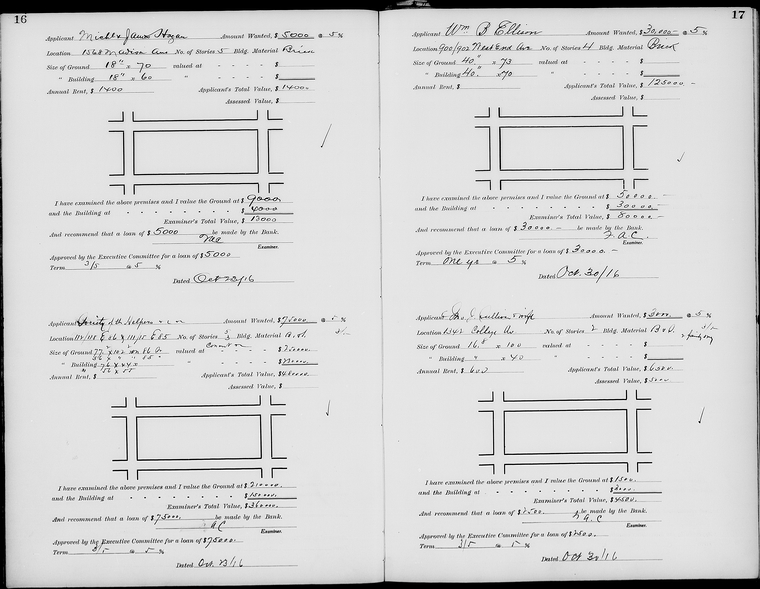 16
Applicant Michl & James Hogan Amount Wanted, $ 5000 @ 5 %
Location 1568 Madison Ave No. of Stories 5 Bldg. Material Brick
Size of Ground 18" x 70 valued at - - - $
" Building 18" x 60 " - - - $
Annual Rent, $ 1400 Applicant's Total Value, $ 1400
Assessed Value, $
I have examined the above premises and I value the Ground at $ 9000
and the Building at - - - - - - - $ 4000
Examiner's Total Value, $ 13000
And recommend that a loan of $ 5000 be made by the Bank.
Examiner.
Approved by the Executive Committee for a loan of $ 5000
Term 3/5 @ 5 %
Dated Oct 23/16
Applicant Society of the Helpers Amount Wanted, $ 75000 @ 5 %
Location 114/118 E 86 & 111/115 E 85 No. of Stories 5 Bldg. Material
Size of Ground valued at - - - $
" Building " - - - $
Annual Rent, $ Applicant's Total Value, $
Assessed Value, $
I have examined the above premises and I value the Ground at $ 210000.
and the Building at - - - - - - - $ 150000.
Examiner's Total Value, $ 360000.
And recommend that a loan of $ 75000. be made by the Bank.
Examiner.
Approved by the Executive Committee for a loan of $ 75000.
Term 3/5 @ 5 %
Dated Oct. 23/16
17
Applicant Wm B Ellison Amount Wanted, $ 30,000 – @ 5 %
Location 900/902 West End Av No. of Stories 4 Bldg. Material Brick
Size of Ground 40." x 73 valued at - - - $
" Building 40." x 70 " - - - $
Annual Rent, $ Applicant's Total Value, $ 125000 –
Assessed Value, $
I have examined the above premises and I value the Ground at $ 50000. –
and the Building at - - - - - - - $ 30000. –
Examiner's Total Value, $ 80000 –
And recommend that a loan of $ 30000. – be made by the Bank.
F. A. C.
Examiner.
Approved by the Executive Committee for a loan of $ 30000 –
Term One yr @ 5 %
Dated Oct. 30/16
Applicant Jno. J. Sullivan & wife Amount Wanted, $ 3000. @ 5 %
Location 1342 College Av No. of Stories 2 Bldg. Material 3/5
2 family
Size of Ground 16.8 x 100 valued at - - - $
" Building " x 40 " - - - $
Annual Rent, $ 600 Applicant's Total Value, $ 6000.
Assessed Value, $ 5000
I have examined the above premises and I value the Ground at $ 1500.
and the Building at - - - - - - - $ 3000.
Examiner's Total Value, $ 4500.
And recommend that a loan of $ 2500. be made by the Bank.
Examiner.
Approved by the Executive Committee for a loan of $ 2500.
Term 3/5 @ 5 %
Dated Oct 30/16